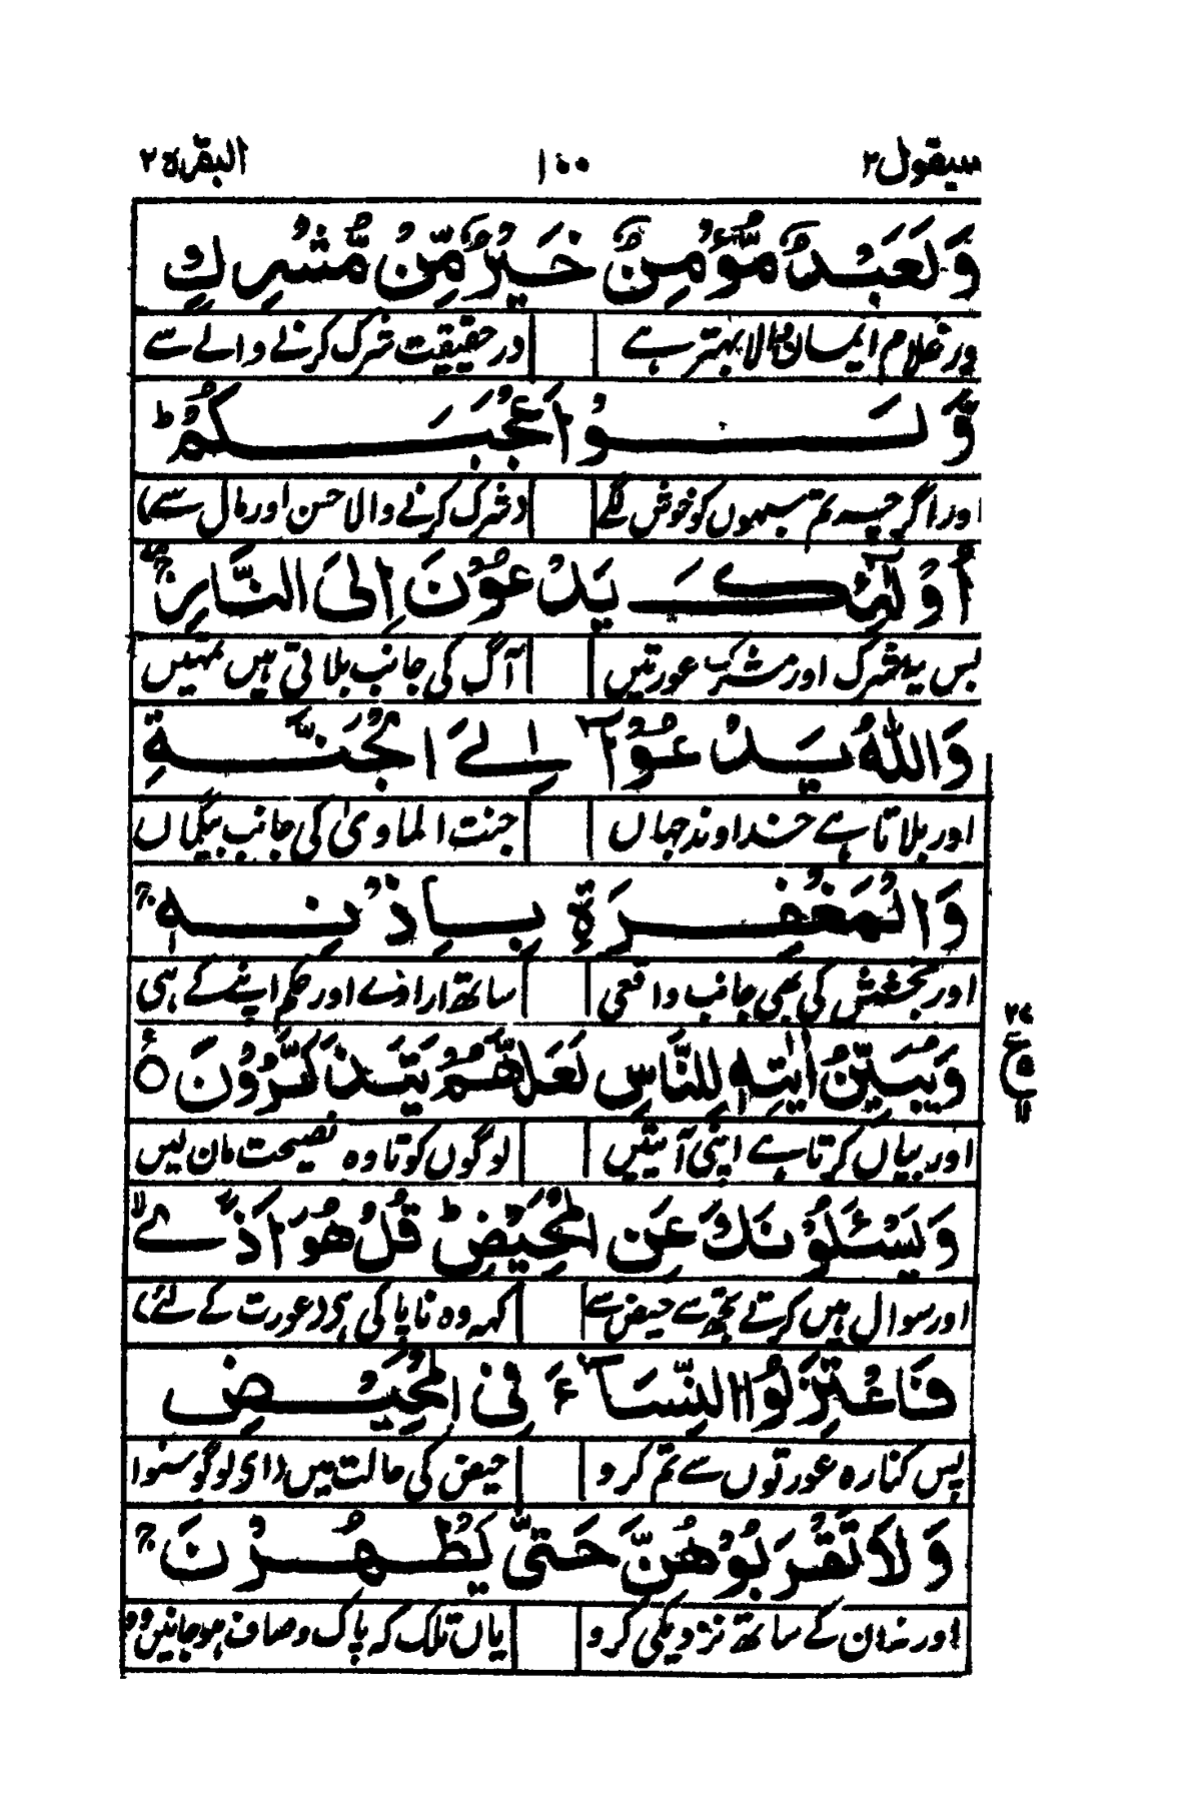 سیقول ۲ ۱۰۰ البقرة ۲
وَلَعَبْدٌ مُّؤْمِنٌ خَيْرٌ مِّنْ مُّشْرِكٍ
ور غلام ایماں والا بہتر ہے در حقیقت شرک کرنے والے سے
وَّلَوْ اَعْجَبَكُمْ ؕ
اور اگرچہ تم سبھوں کو خوش لگے (شرک کرنے والا حسن اور مال سے)
اُولٰٓئِكَ يَدْعُوْنَ اِلَى النَّارِ ۚۖ
بس یہ مشرک اور مشرک عورتیں آگ کی جانب بلاتی ہیں تمہیں
وَاللّٰهُ يَدْعُوْٓا اِلَى الْجَنَّةِ
اور بلاتا ہے خداوند جہاں جنت الماویٰ کی جانب بیگماں
وَالْمَغْفِرَةِ بِاِذْنِهٖ ۚ
اور بخشش کی بھی جانب واقعی ساتھ ارادے اور حکم اپنے کے ہی
وَيُبَيِّنُ اٰيٰتِهٖ لِلنَّاسِ لَعَلَّهُمْ يَتَذَكَّرُوْنَ ۠
اور بیاں کرتا ہے اپنی آیتیں لوگوں کو تا وہ نصیحت مان لیں
۲۷
ع
۱۱
وَيَسْـَٔلُوْنَكَ عَنِ الْمَحِيْضِ ؕ قُلْ هُوَ اَذًى ۙ
اور سوال ہیں کرتے تجھ سے حیض سے کہہ وہ ناپاکی ہی (عورت کے لئے)
فَاعْتَزِلُوا النِّسَآءَ فِي الْمَحِيْضِ
پس کنارہ عورتوں سے تم کرو حیض کی حالت میں (ای لوگو سنو)
وَلَا تَقْرَبُوْهُنَّ حَتّٰى يَطْهُرْنَ ۚ
اور نہ ان کے ساتھ نزدیکی کرو یاں تلک کہ پاک و صاف ہو جائیں وہ